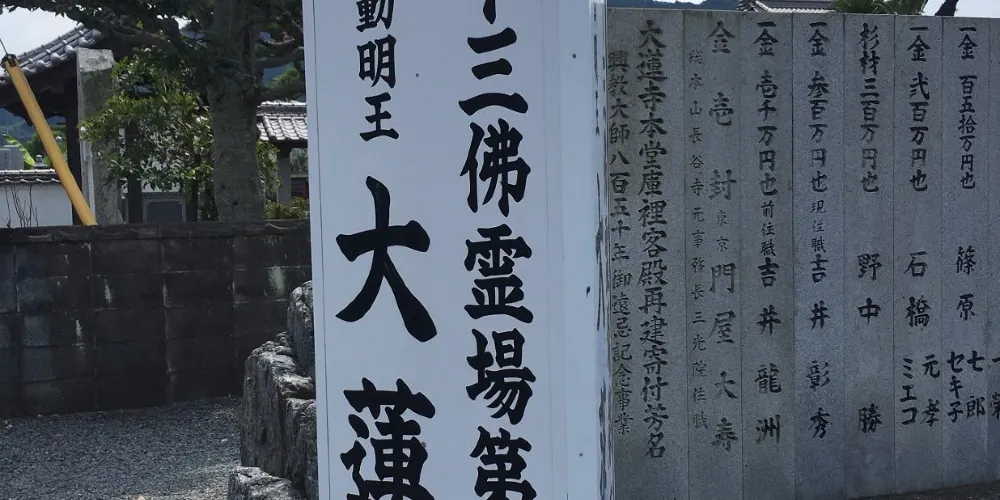 十三佛霊場第
動明王
大蓮
一金 百五拾万円也 篠原 七郎 セキ子
一金 弐百万円也 石橋 元孝 ミエコ
杉材三百万円也 野中勝
一金 参百万円也 現住職 吉井彰秀
一金 壱千万円也 前住職 吉井龍洲
金壱封 東京 門屋大寿
総本山長谷寺元事務長三光院住職
大蓮寺本堂庫裡客殿再建寄付芳名
興教大師八百五十年御遠忌記念事業